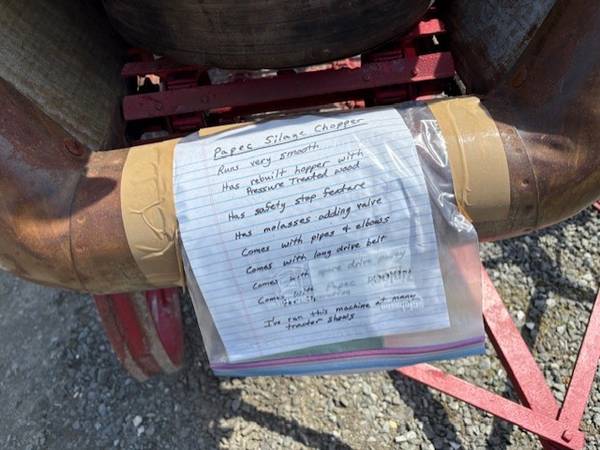 Papec Silage Chopper
Runs very smooth
Has rebuilt hopper with
Pressure Treated wood
Has safety stop feature
Has molasses adding valve
Comes with pipes & elbows
Comes with long drive belt
Comes with spare drive pulley
Comes with Papec
I've ran this machine at many
tractor shows